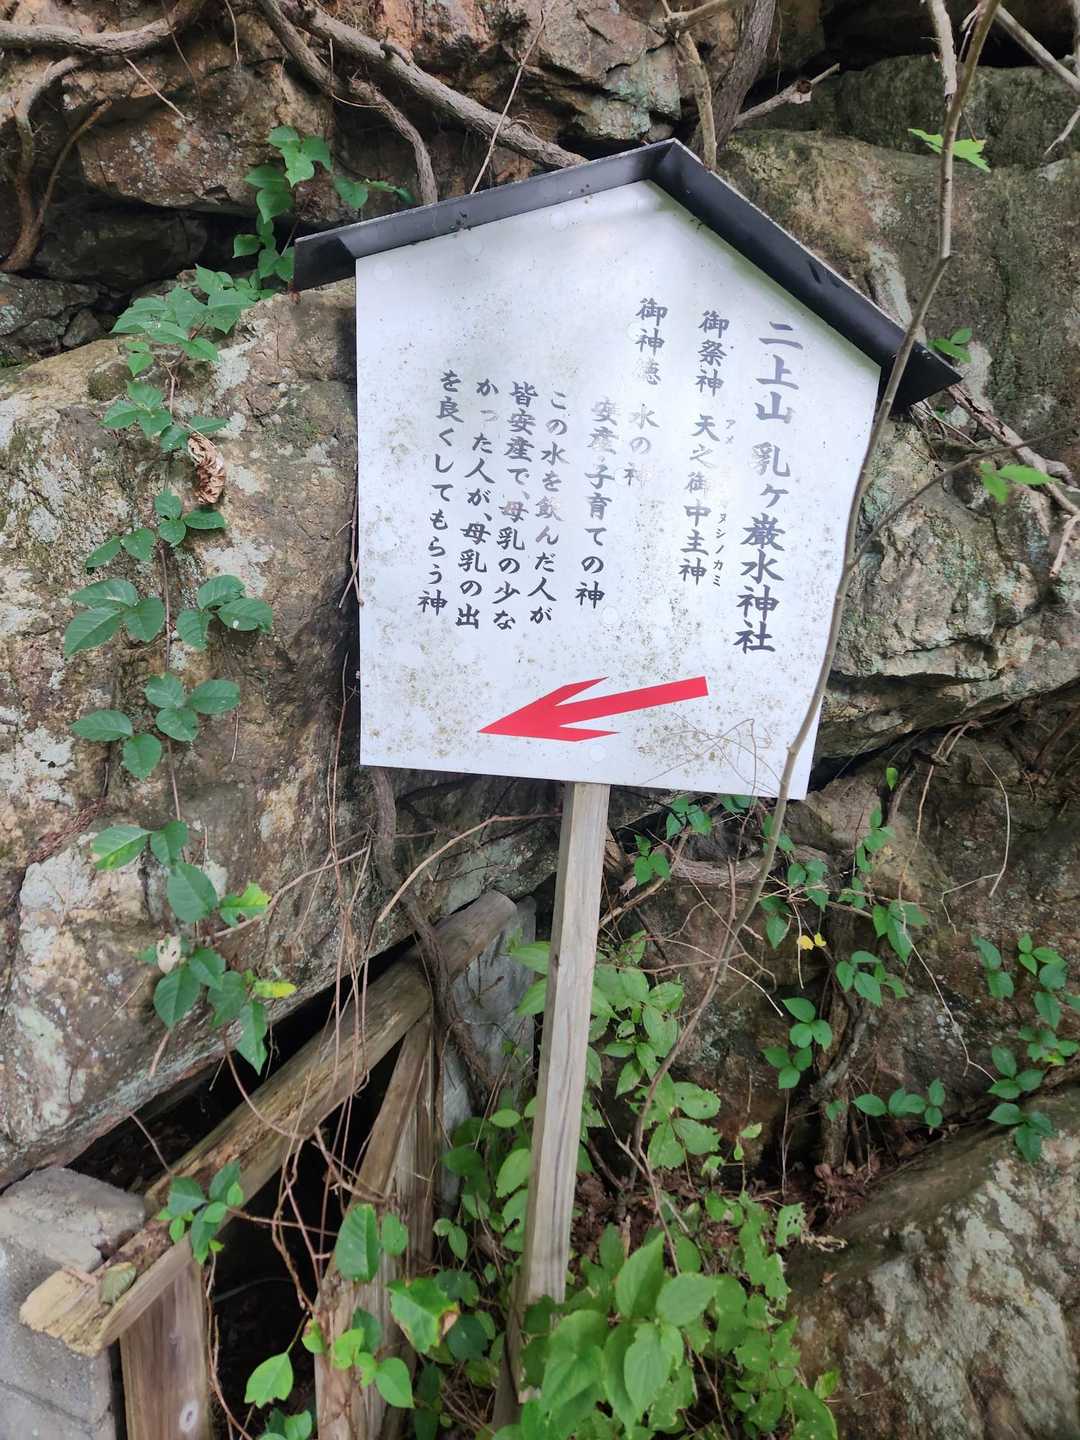 二上山 乳ヶ巌水神社
御祭神 天之御中主神
アメ ヌシノカミ
御神徳 水の神
安産子育ての神
この水を飲んだ人が
皆安産で、母乳の少な
かった人が、母乳の出
を良くしてもらう神